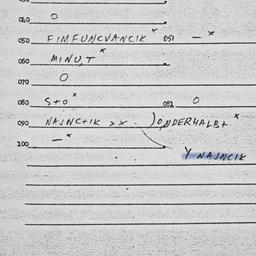 040 O
050 FIMFUNCVANCIK x 051 — x
060 MINU,T x
070 O
080 S+O x 081 O
090 NAJNC+IK xx. )ONDERHALB+ x
100 — x
Y NAJNCIK